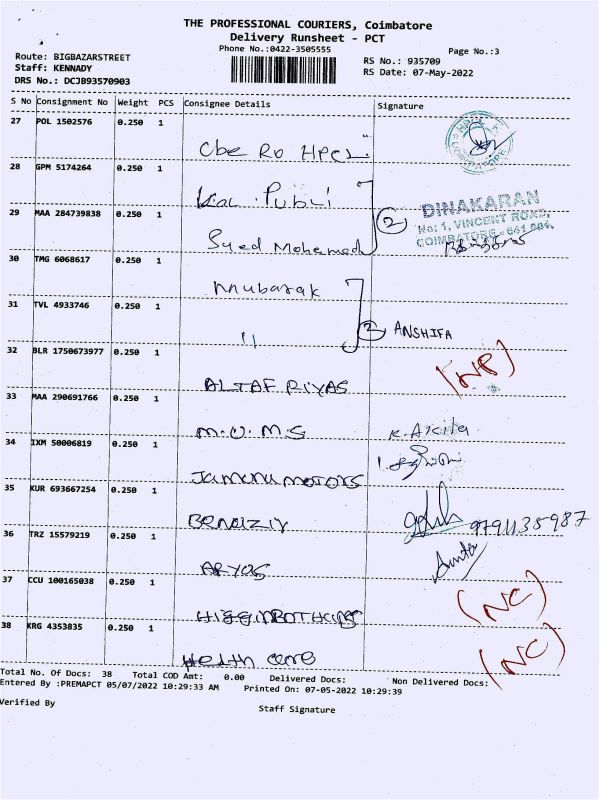 THE PROFESSIONAL COURIERS, Coimbatore
Delivery Runsheet - PCT
Phone No.:0422-3505555
Page No.:3
Route: BIGBAZARSTREET
Staff: KENNADY
DRS No.: DCJB93570903
RS No.: 935709
RS Date: 07-May-2022
S No Consignment No Weight PCS Consignee Details Signature
27 POL 1502576 0.250 1
Cbe Ro HPCL
28 GPM 5174264 0.250 1
Kal. Publi
29 MAA 284739838 0.250 1
2
DINAKARAN
No: 1, VINCENT ROAD,
COIMBATORE - 641 001.
Syed Mohamed
30 TMG 6068617 0.250 1
Mubarak
31 TVL 4933746 0.250 1
"
2 ANSHIFA
32 BLR 1750673977 0.250 1
ALTAF RIYAS
(NP)
33 MAA 290691766 0.250 1
M.O.M.S
K. Akila
34 IXM 50006819 0.250 1
Jamuna MOTORS
35 KUR 693667254 0.250 1
9791135987
36 TRZ 15579219 0.250 1
ARYAS
Anita
37 CCU 100165038 0.250 1
(NC)
38 KRG 4353835 0.250 1
Health care
(NC)
Total No. Of Docs: 38 Total COD Amt: 0.00 Delivered Docs: Non Delivered Docs:
Entered By :PREMAPCT 05/07/2022 10:29:33 AM Printed On: 07-05-2022 10:29:39
Verified By
Staff Signature